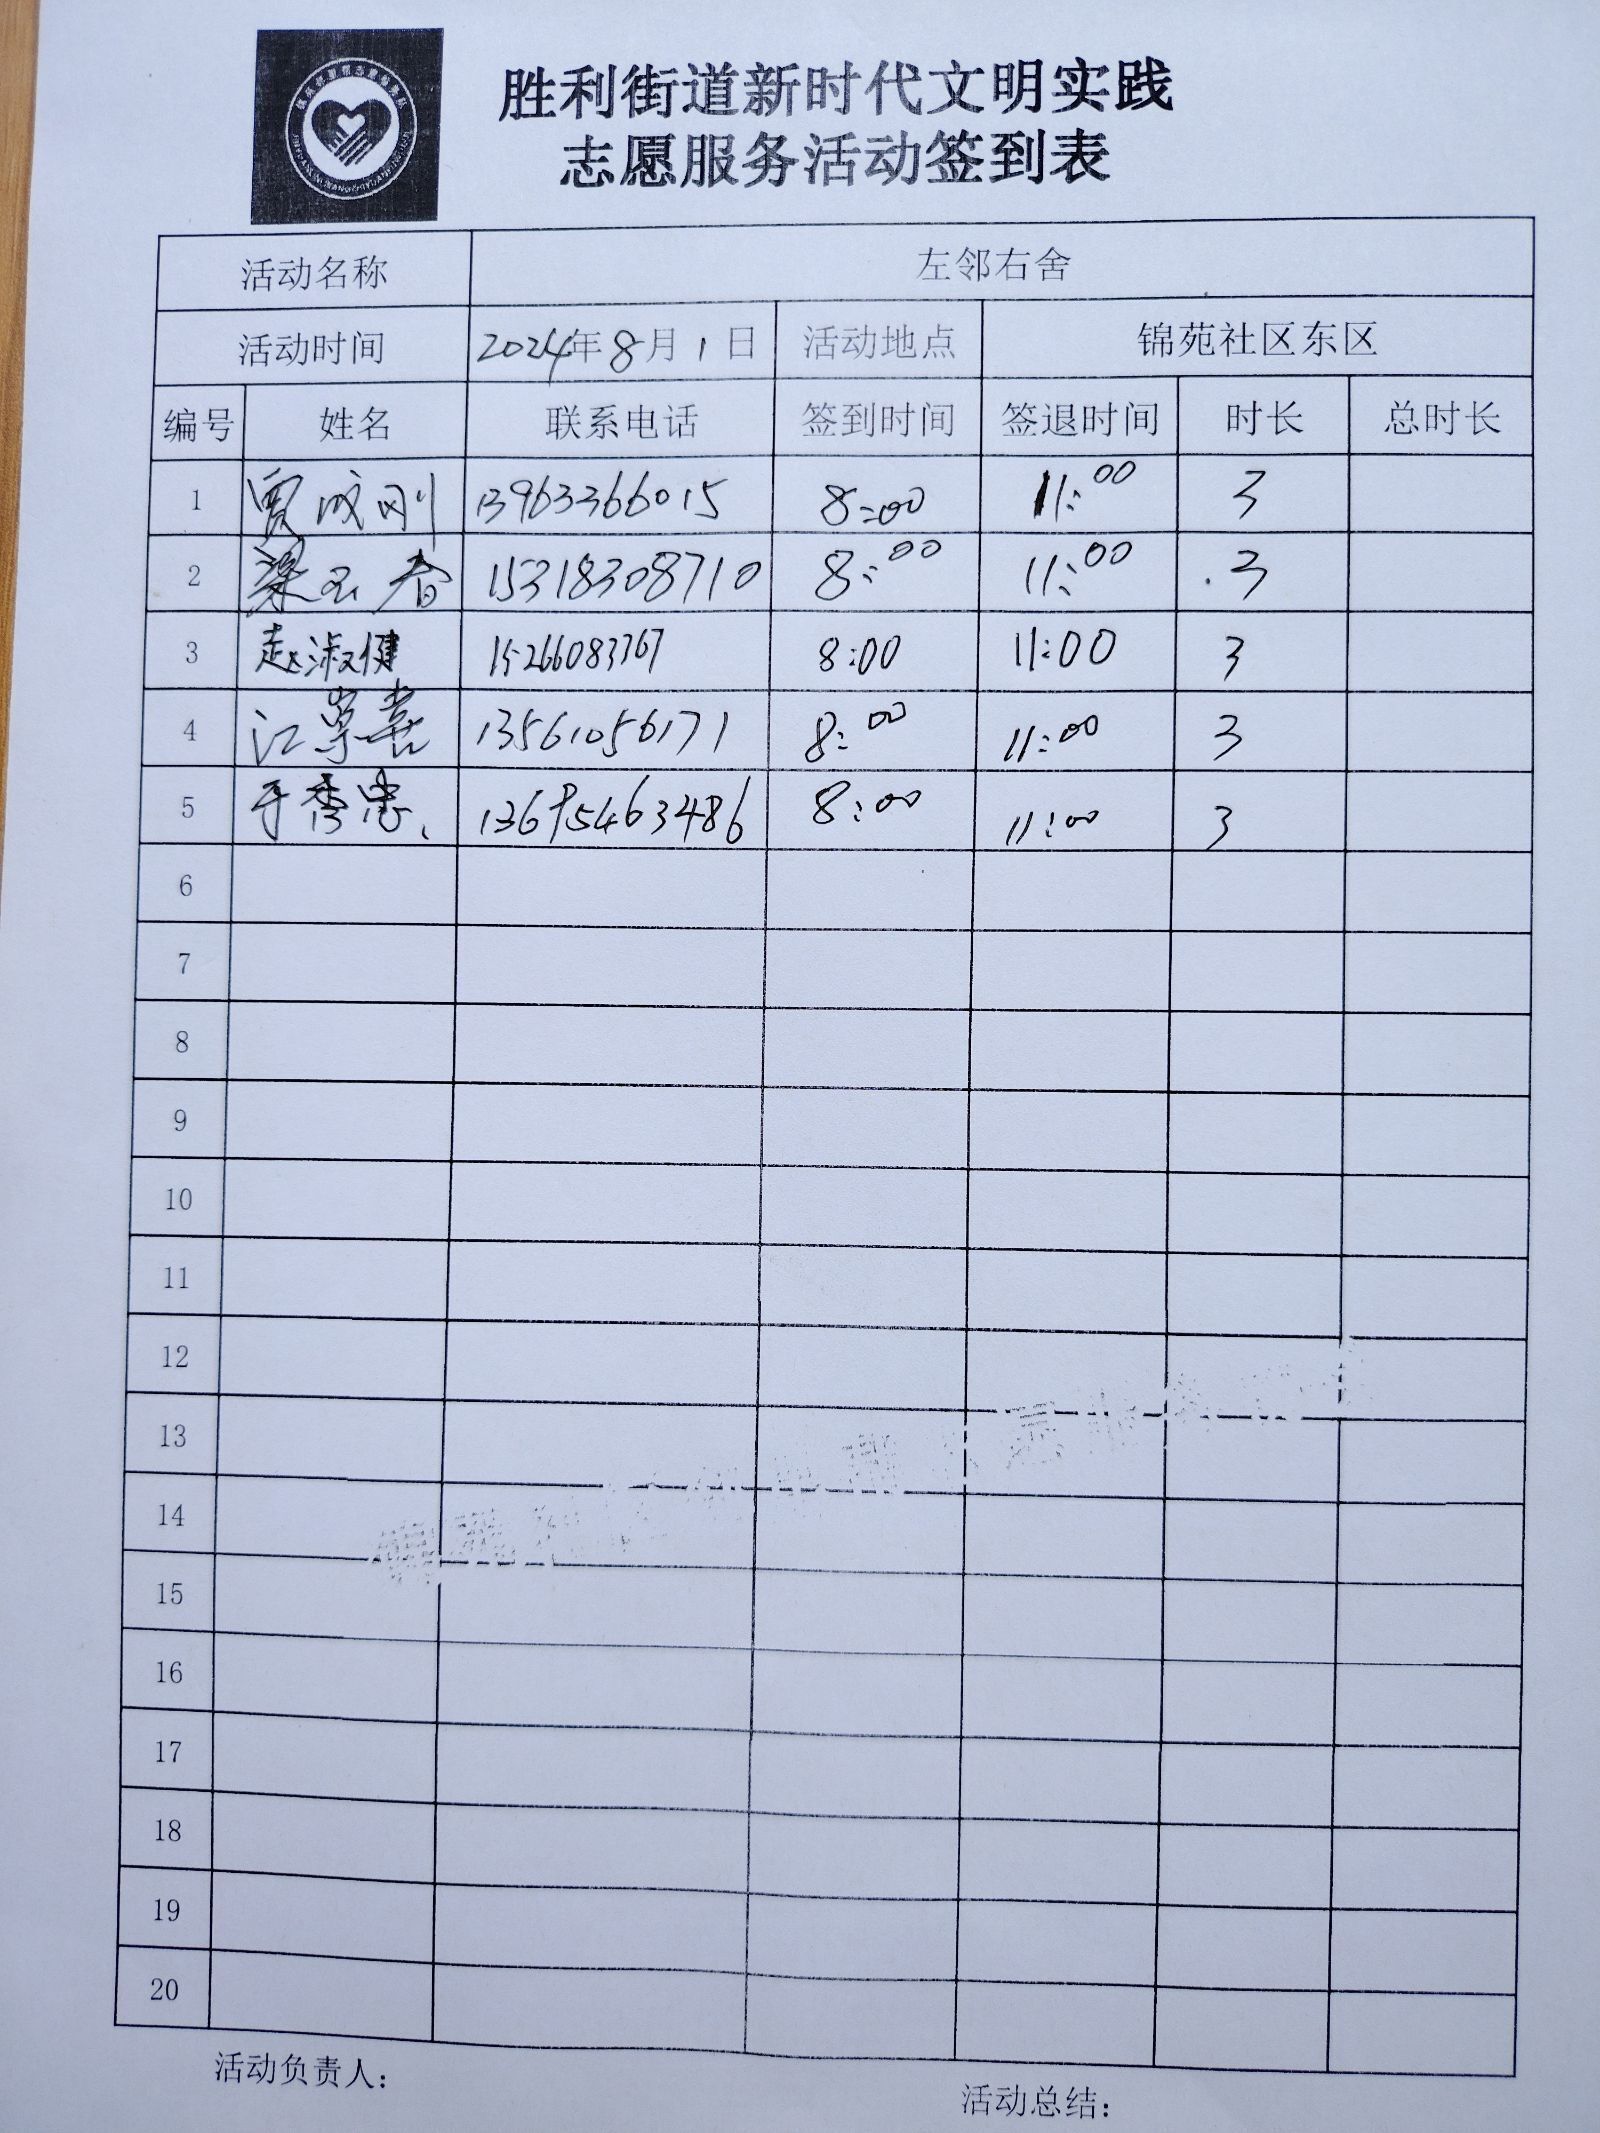 胜利街道新时代文明实践
志愿服务活动签到表
活动名称 左邻右舍
活动时间 2024年8月1日 活动地点 锦苑社区东区
编号 姓名 联系电话 签到时间 签退时间 时长 总时长
1 贾成刚 13963366015 8:00 11:00 3
2 梁玉春 15318308710 8:00 11:00 3
3 赵淑健 15266083767 8:00 11:00 3
4 江崇喜 13561056171 8:00 11:00 3
5 于秀忠 13695463486 8:00 11:00 3
6
7
8
9
10
11
12
13
14
15
16
17
18
19
20
活动负责人：
活动总结：